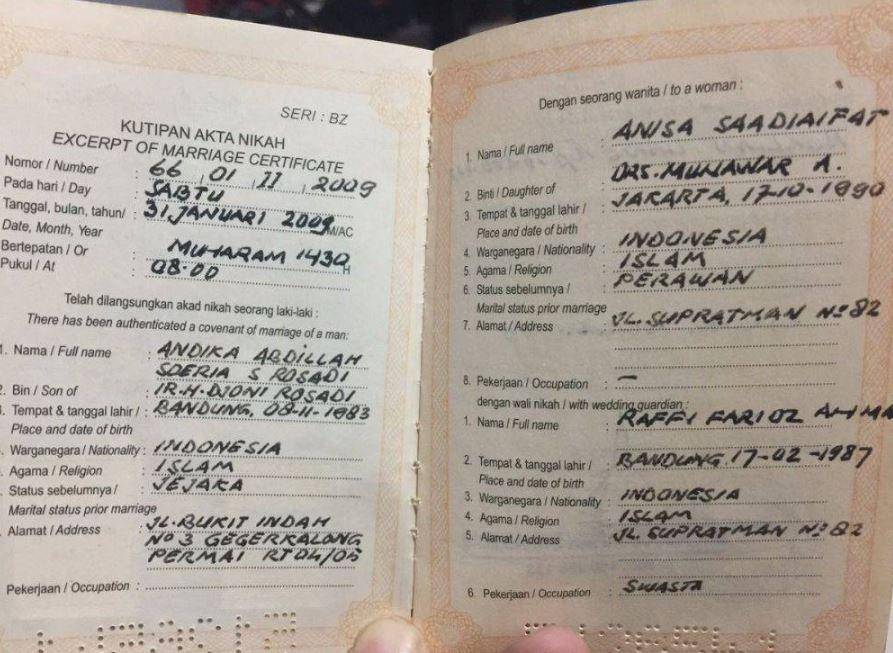 SERI : BZ
KUTIPAN AKTA NIKAH
EXCERPT OF MARRIAGE CERTIFICATE
Nomor / Number : 66 , 01 , II , 2009
Pada hari / Day : SABTU
Tanggal, bulan, tahun/ : 31 JANUARI 2009 M/AC
Date, Month, Year
Bertepatan / Or : MUHARAM 1430 H
Pukul / At : 08.00
Telah dilangsungkan akad nikah seorang laki-laki :
There has been authenticated a covenant of marriage of a man:
1. Nama / Full name : ANDIKA ABDILLAH
SOERIA S ROSADI
2. Bin / Son of : IR.H.DJONI ROSADI
Tempat & tanggal lahir / : BANDUNG, 08-11-1983
Place and date of birth
Warganegara / Nationality : INDONESIA
Agama / Religion : ISLAM
Status sebelumnya / : JEJAKA
Marital status prior marriage
Alamat / Address : JL.BUKIT INDAH
No 3 GEGERKALONG
PERMAI RT 04/05
Pekerjaan / Occupation :
Dengan seorang wanita / to a woman :
1. Nama / Full name : ANISA SAADIAIFAT
2. Binti / Daughter of : DRS.MUNAWAR A.
3. Tempat & tanggal lahir / : JAKARTA, 17-10-1990
Place and date of birth
4. Warganegara / Nationality : INDONESIA
5. Agama / Religion : ISLAM
6. Status sebelumnya / : PERAWAN
Marital status prior marriage
7. Alamat / Address : JL.SUPRATMAN No 82
8. Pekerjaan / Occupation : –
dengan wali nikah / with wedding guardian :
1. Nama / Full name : RAFFI FARIDZ AHMA
2. Tempat & tanggal lahir / : BANDUNG 17-02-1987
Place and date of birth
3. Warganegara / Nationality : INDONESIA
4. Agama / Religion : ISLAM
5. Alamat / Address : JL. SUPRATMAN No 82
6. Pekerjaan / Occupation : SWASTA